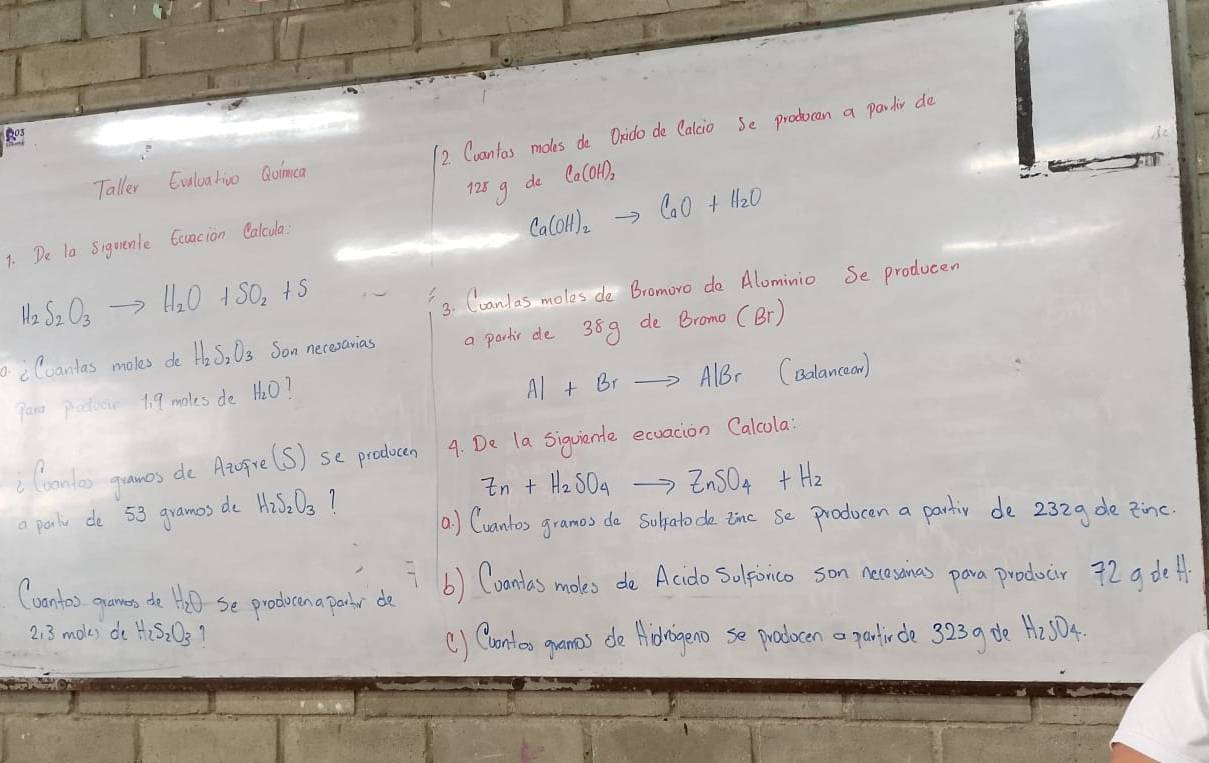 Taller Evaluativo Química
1. De la siguiente Ecuación Calcula:
H₂S₂O₃ → H₂O + SO₂ + S
a. ¿Cuantas moles de H₂S₂O₃ Son necesarias
para producir 1,9 moles de H₂O?
¿Cuantos gramos de Azufre (S) se producen
a partir de 53 gramos de H₂S₂O₃?
Cuantos gramos de H₂O se producen a partir de
2,3 moles de H₂S₂O₃?
2. Cuantas moles de Oxido de Calcio Se producen a partir de
128 g de Ca(OH)₂
Ca(OH)₂ → CaO + H₂O
3. Cuantas moles de Bromuro de Aluminio Se producen
a partir de 38g de Bromo (Br)
Al + Br → AlBr (Balancear)
4. De la siguiente ecuación Calcula:
Zn + H₂SO₄ → ZnSO₄ + H₂
a.) Cuantos gramos de Sulfato de zinc se producen a partir de 232g de zinc.
b) Cuantas moles de Acido Sulfúrico son necesarias para producir 72 g de H.
c) Cuantos gramos de Hidrógeno se producen a partir de 323g de H₂SO₄.